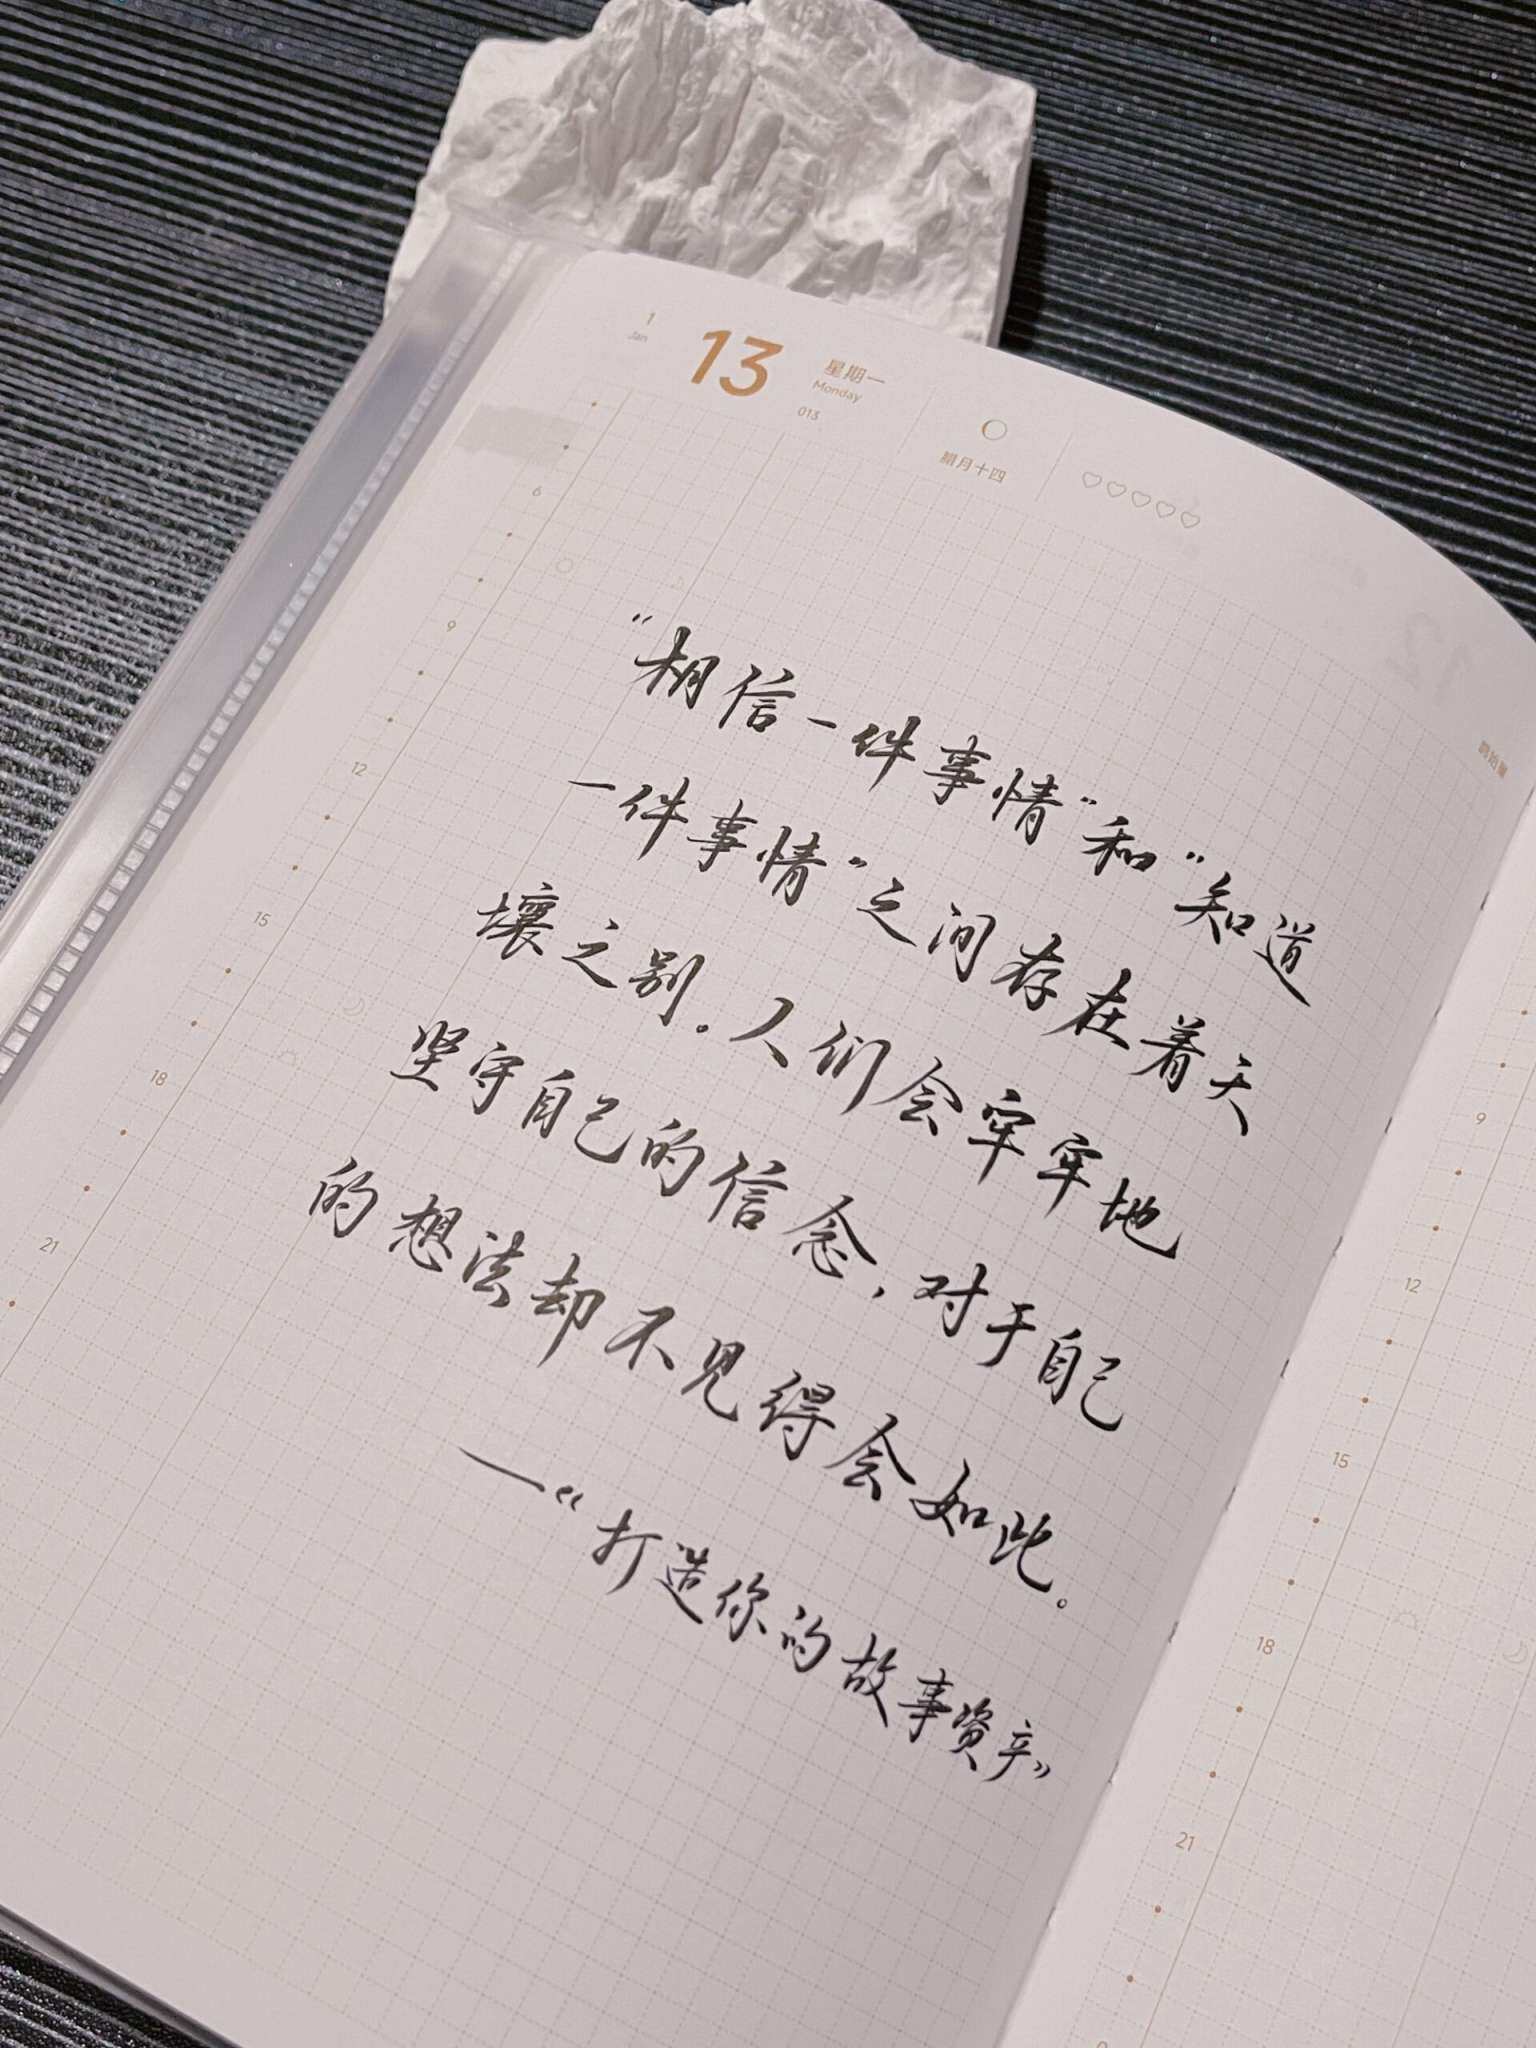 1
Jan
13
星期一
Monday
013
腊月十四
“相信一件事情”和“知道
一件事情”之间存在着天
壤之别。人们会牢牢地
坚守自己的信念，对于自己
的想法却不见得会如此。
—“打造你的故事资产”
6
9
12
15
18
21
9
12
15
18
21